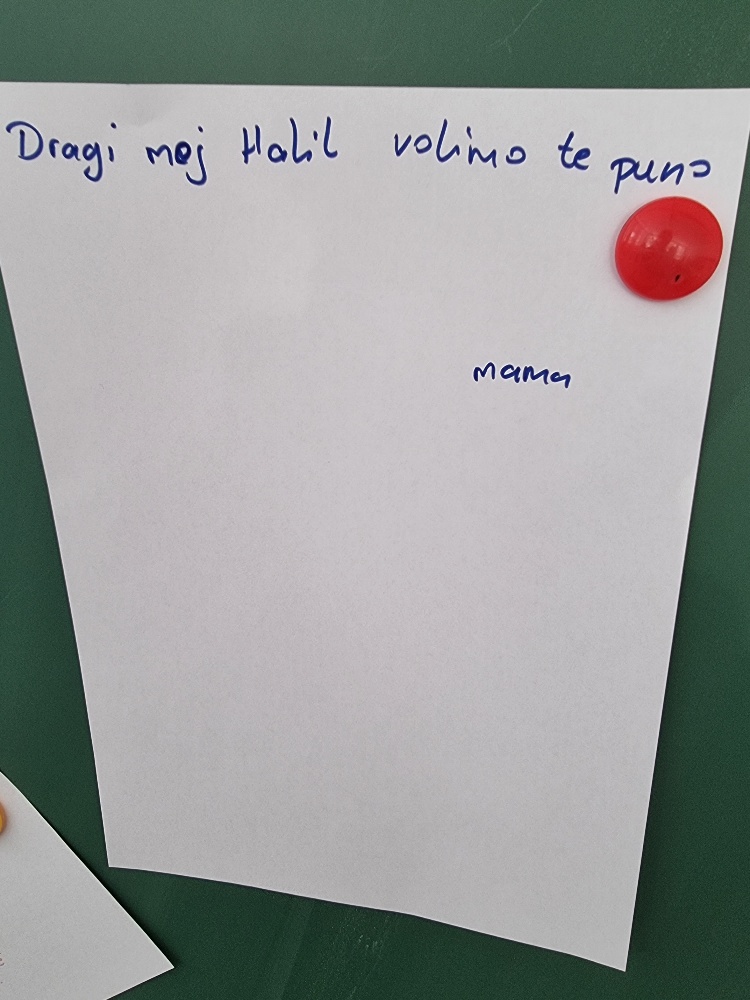 Dragi moj Halil volimo te puno
mama